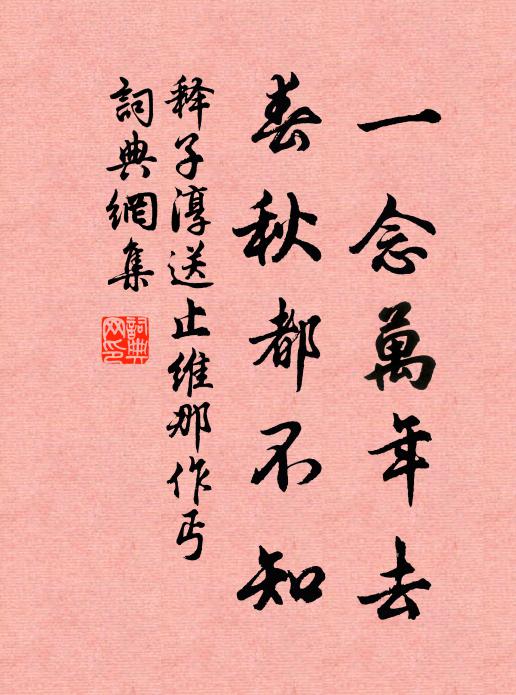 一念萬年去
春秋都不知
释子淳送止维那作丐
詞典網集
詞典网印